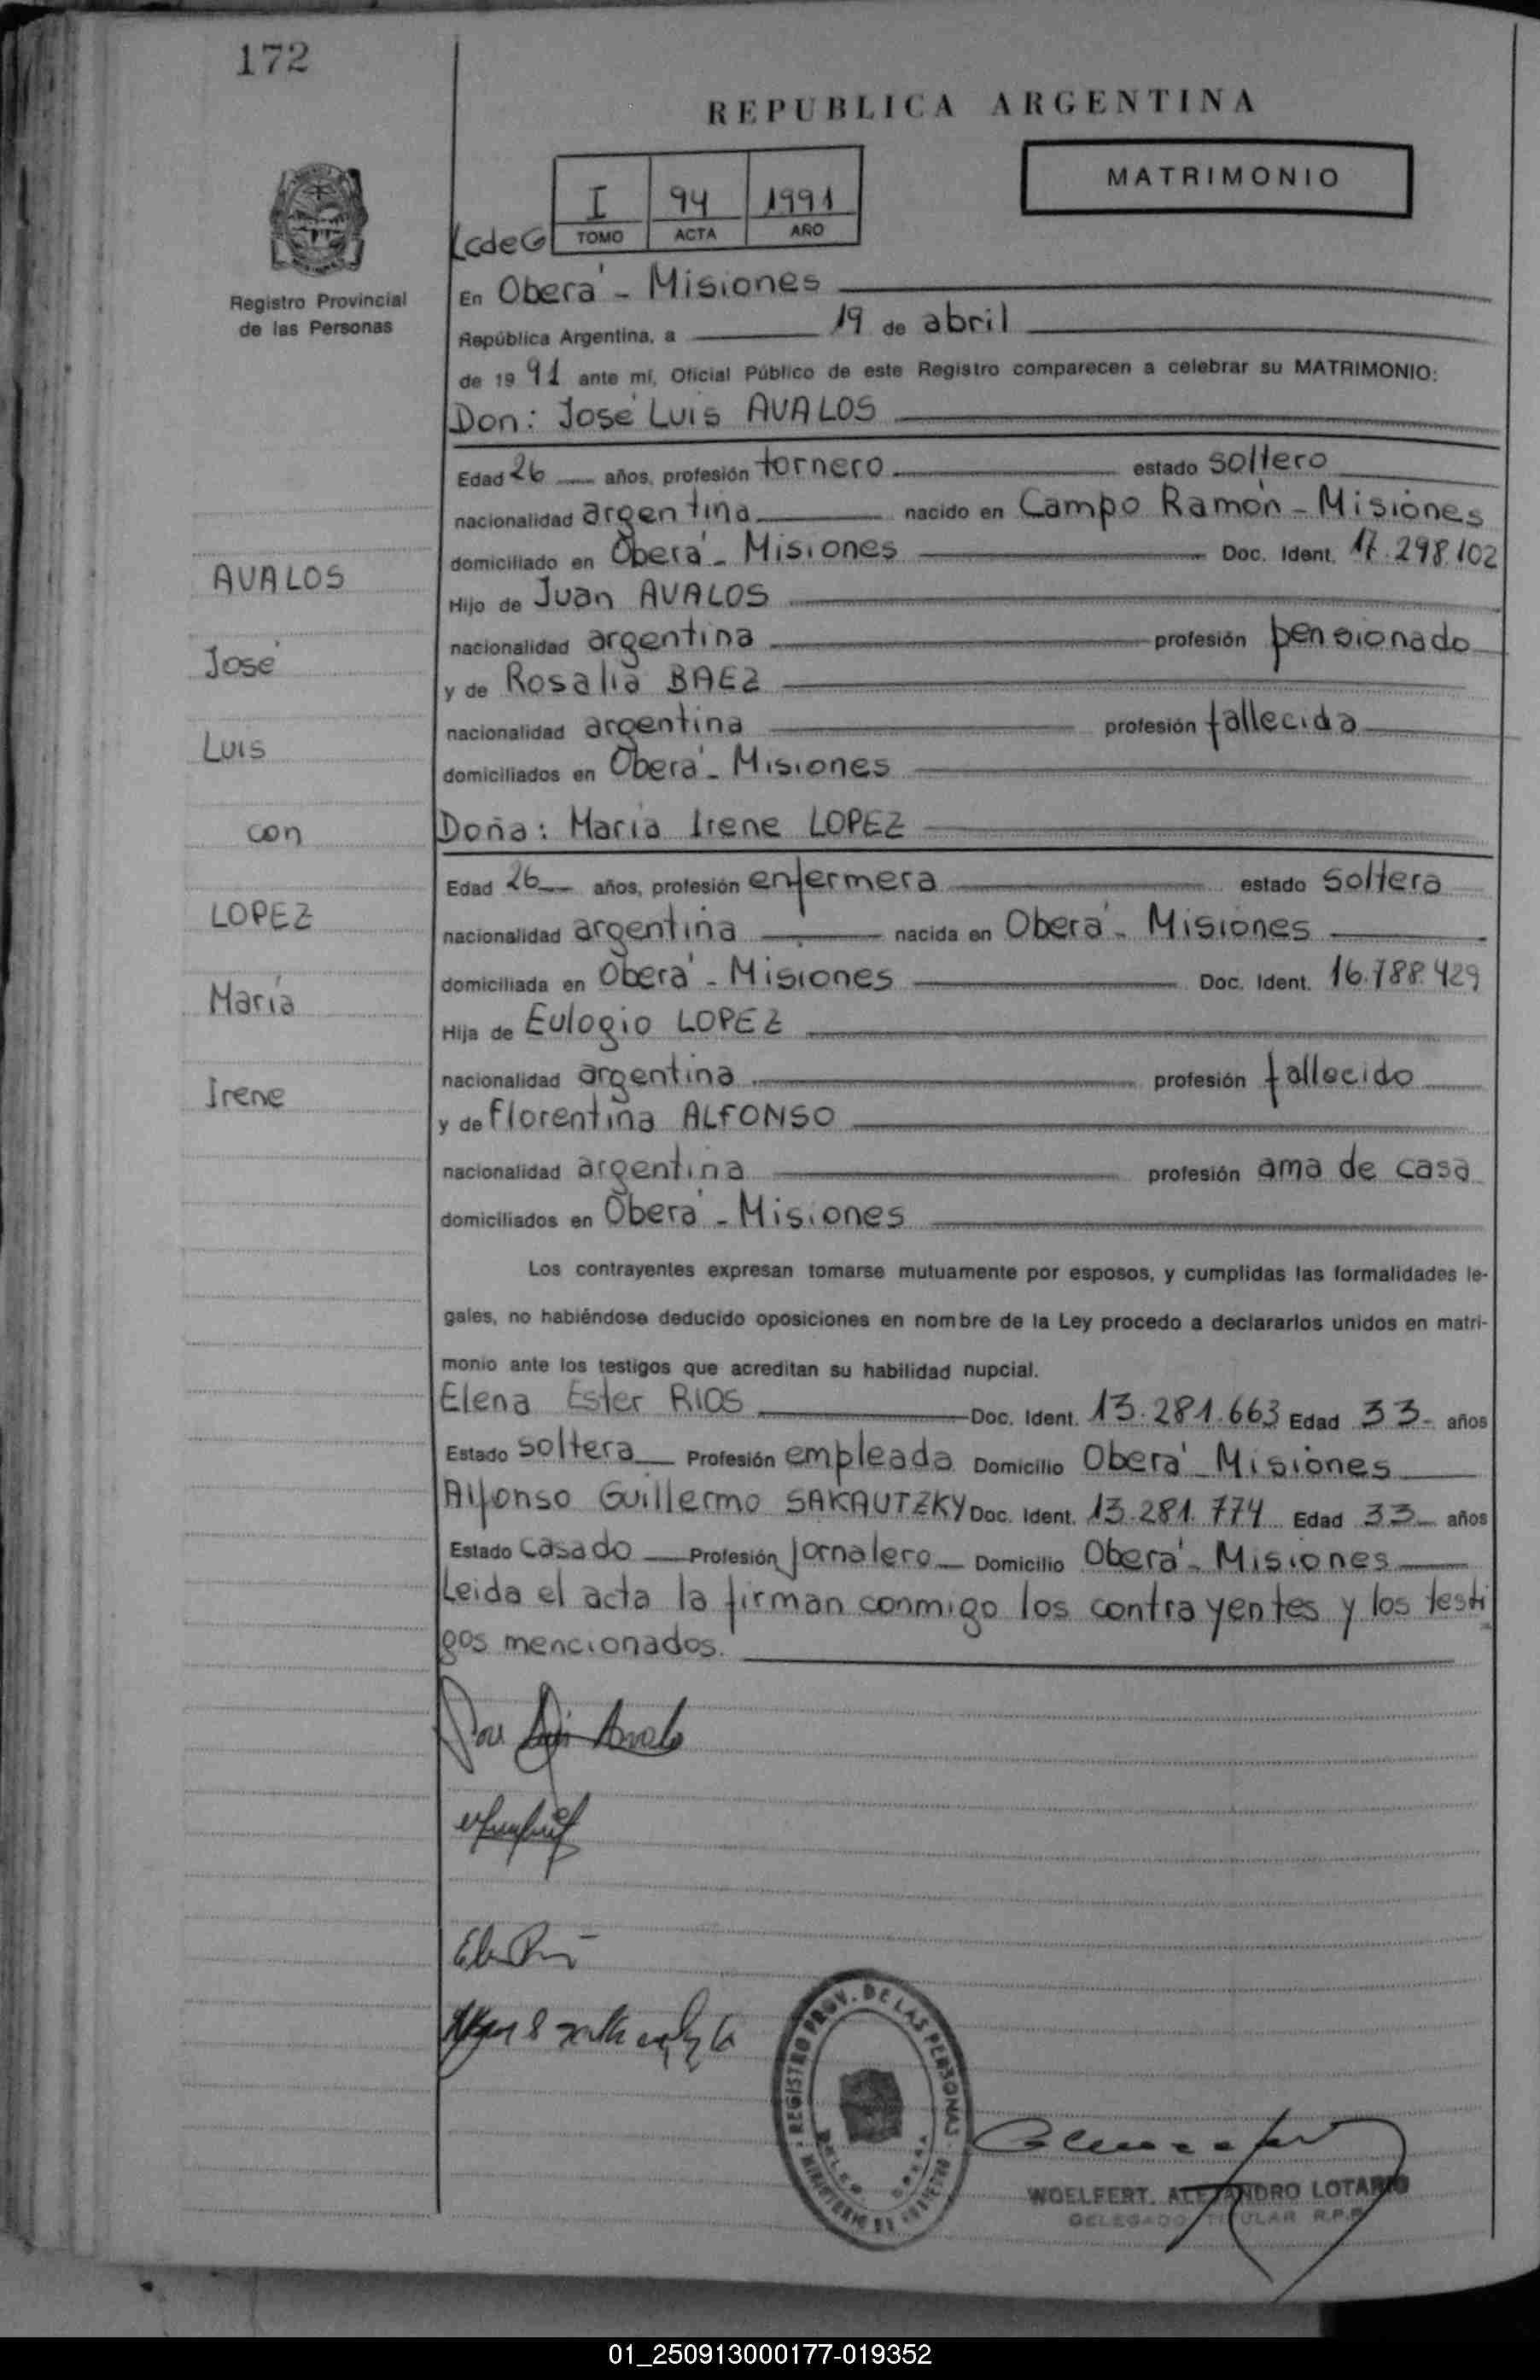 172
REPUBLICA ARGENTINA
MATRIMONIO
I 94 1991
TOMO ACTA AÑO
Registro Provincial
de las Personas
En Oberá - Misiones
República Argentina, a 19 de abril
de 1991 ante mí, Oficial Público de este Registro comparecen a celebrar su MATRIMONIO:
Don: José Luis AVALOS
Edad 26 años, profesión tornero estado soltero
nacionalidad argentina nacido en Campo Ramón - Misiones
domiciliado en Oberá - Misiones Doc. Ident. 17.298.102
AVALOS
Hijo de Juan AVALOS
nacionalidad argentina profesión pensionado
José
y de Rosalia BAEZ
nacionalidad argentina profesión fallecida
Luis
domiciliados en Oberá - Misiones
con
Doña: María Irene LOPEZ
Edad 26 años, profesión enfermera estado soltera
LOPEZ
nacionalidad argentina nacida en Oberá - Misiones
domiciliada en Oberá - Misiones Doc. Ident. 16.788.429
María
Hija de Eulogio LOPEZ
nacionalidad argentina profesión fallecido
Irene
y de Florentina ALFONSO
nacionalidad argentina profesión ama de casa
domiciliados en Oberá - Misiones
Los contrayentes expresan tomarse mutuamente por esposos, y cumplidas las formalidades le-
gales, no habiéndose deducido oposiciones en nombre de la Ley procedo a declararlos unidos en matri-
monio ante los testigos que acreditan su habilidad nupcial.
Elena Ester RIOS Doc. Ident. 13.281.663 Edad 33 años
Estado soltera Profesión empleada Domicilio Oberá - Misiones
Alfonso Guillermo SAKAUTZKY Doc. Ident. 13.281.774 Edad 33 años
Estado casado Profesión jornalero Domicilio Oberá - Misiones
Leida el acta la firman conmigo los contrayentes y los testi
gos mencionados.
REGISTRO PROV. DE LAS PERSONAS
WOELFERT, ALEJANDRO LOTARIO
DELEGADO TITULAR R.P.P.
01_250913000177-019352